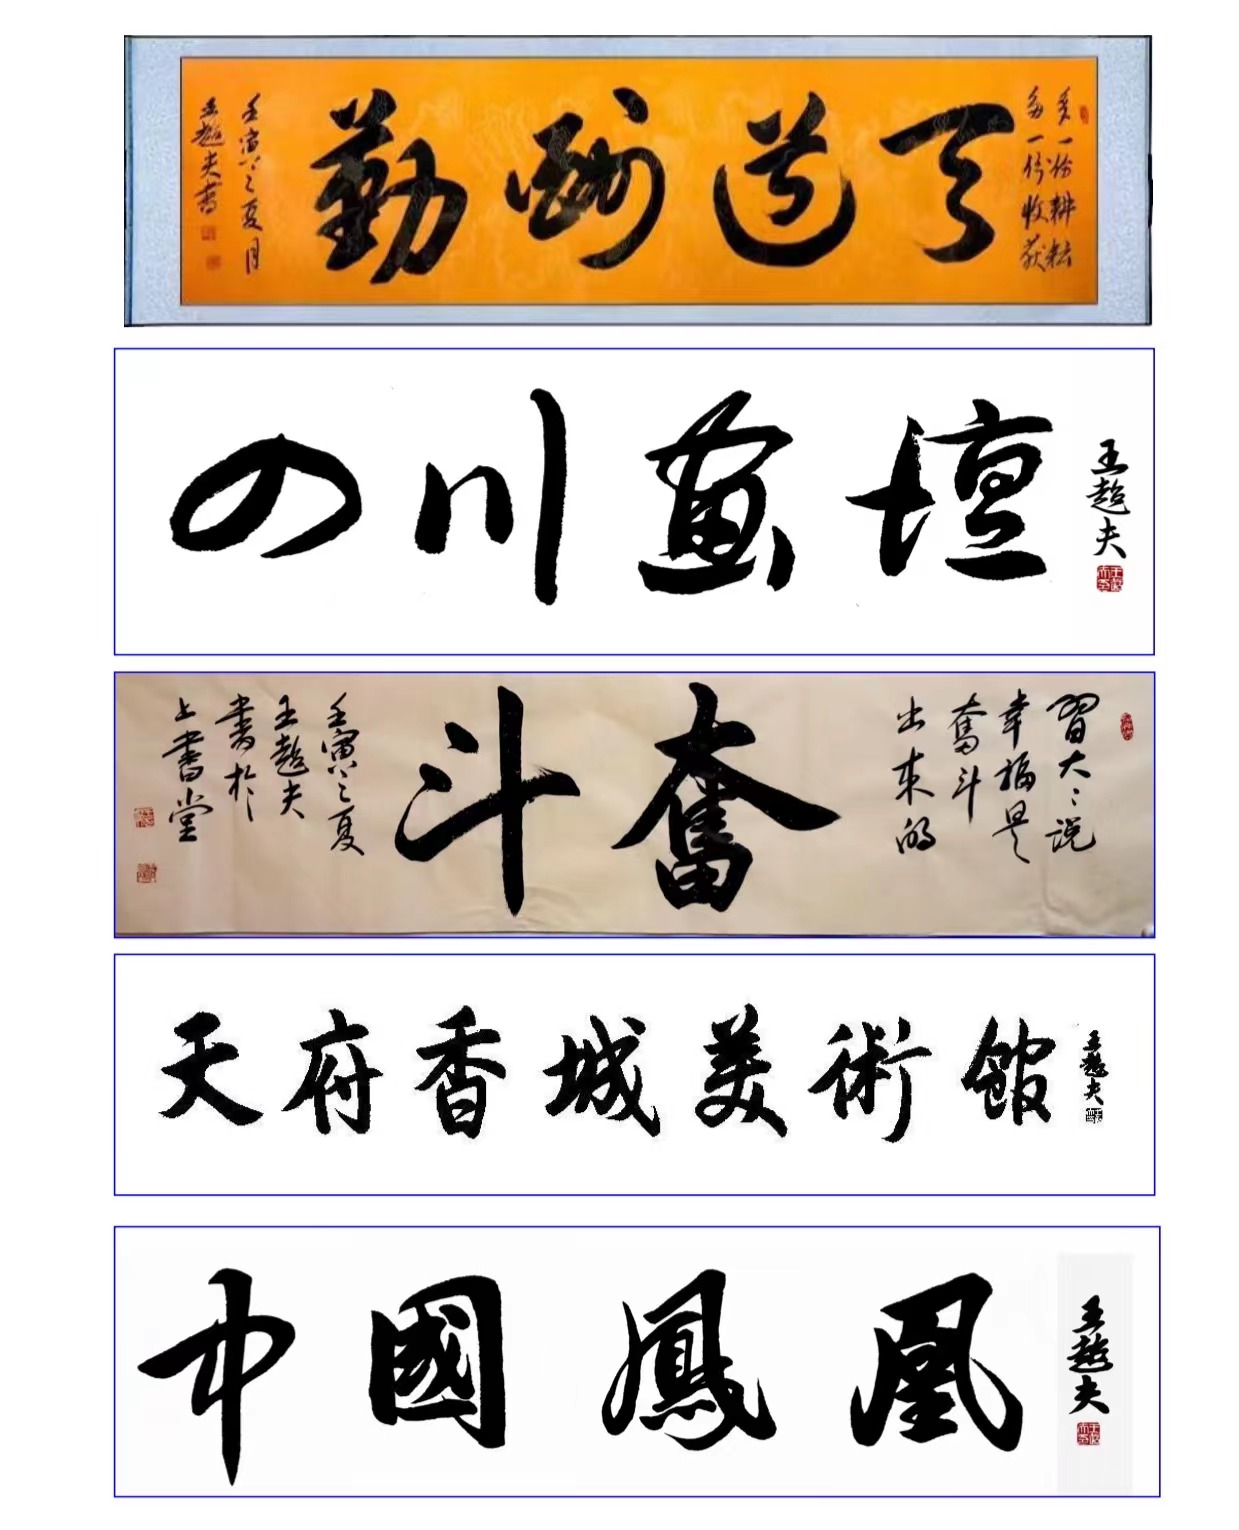 多一份耕耘
多一倍收获
天道酬勤
壬寅之夏月
王超夫書
四川畫壇
王超夫
習大大说
幸福是
奮斗
出來的
奮斗
壬寅之夏
王超夫
書於
上書堂
天府香城美術館
王超夫
中國鳳凰
王超夫